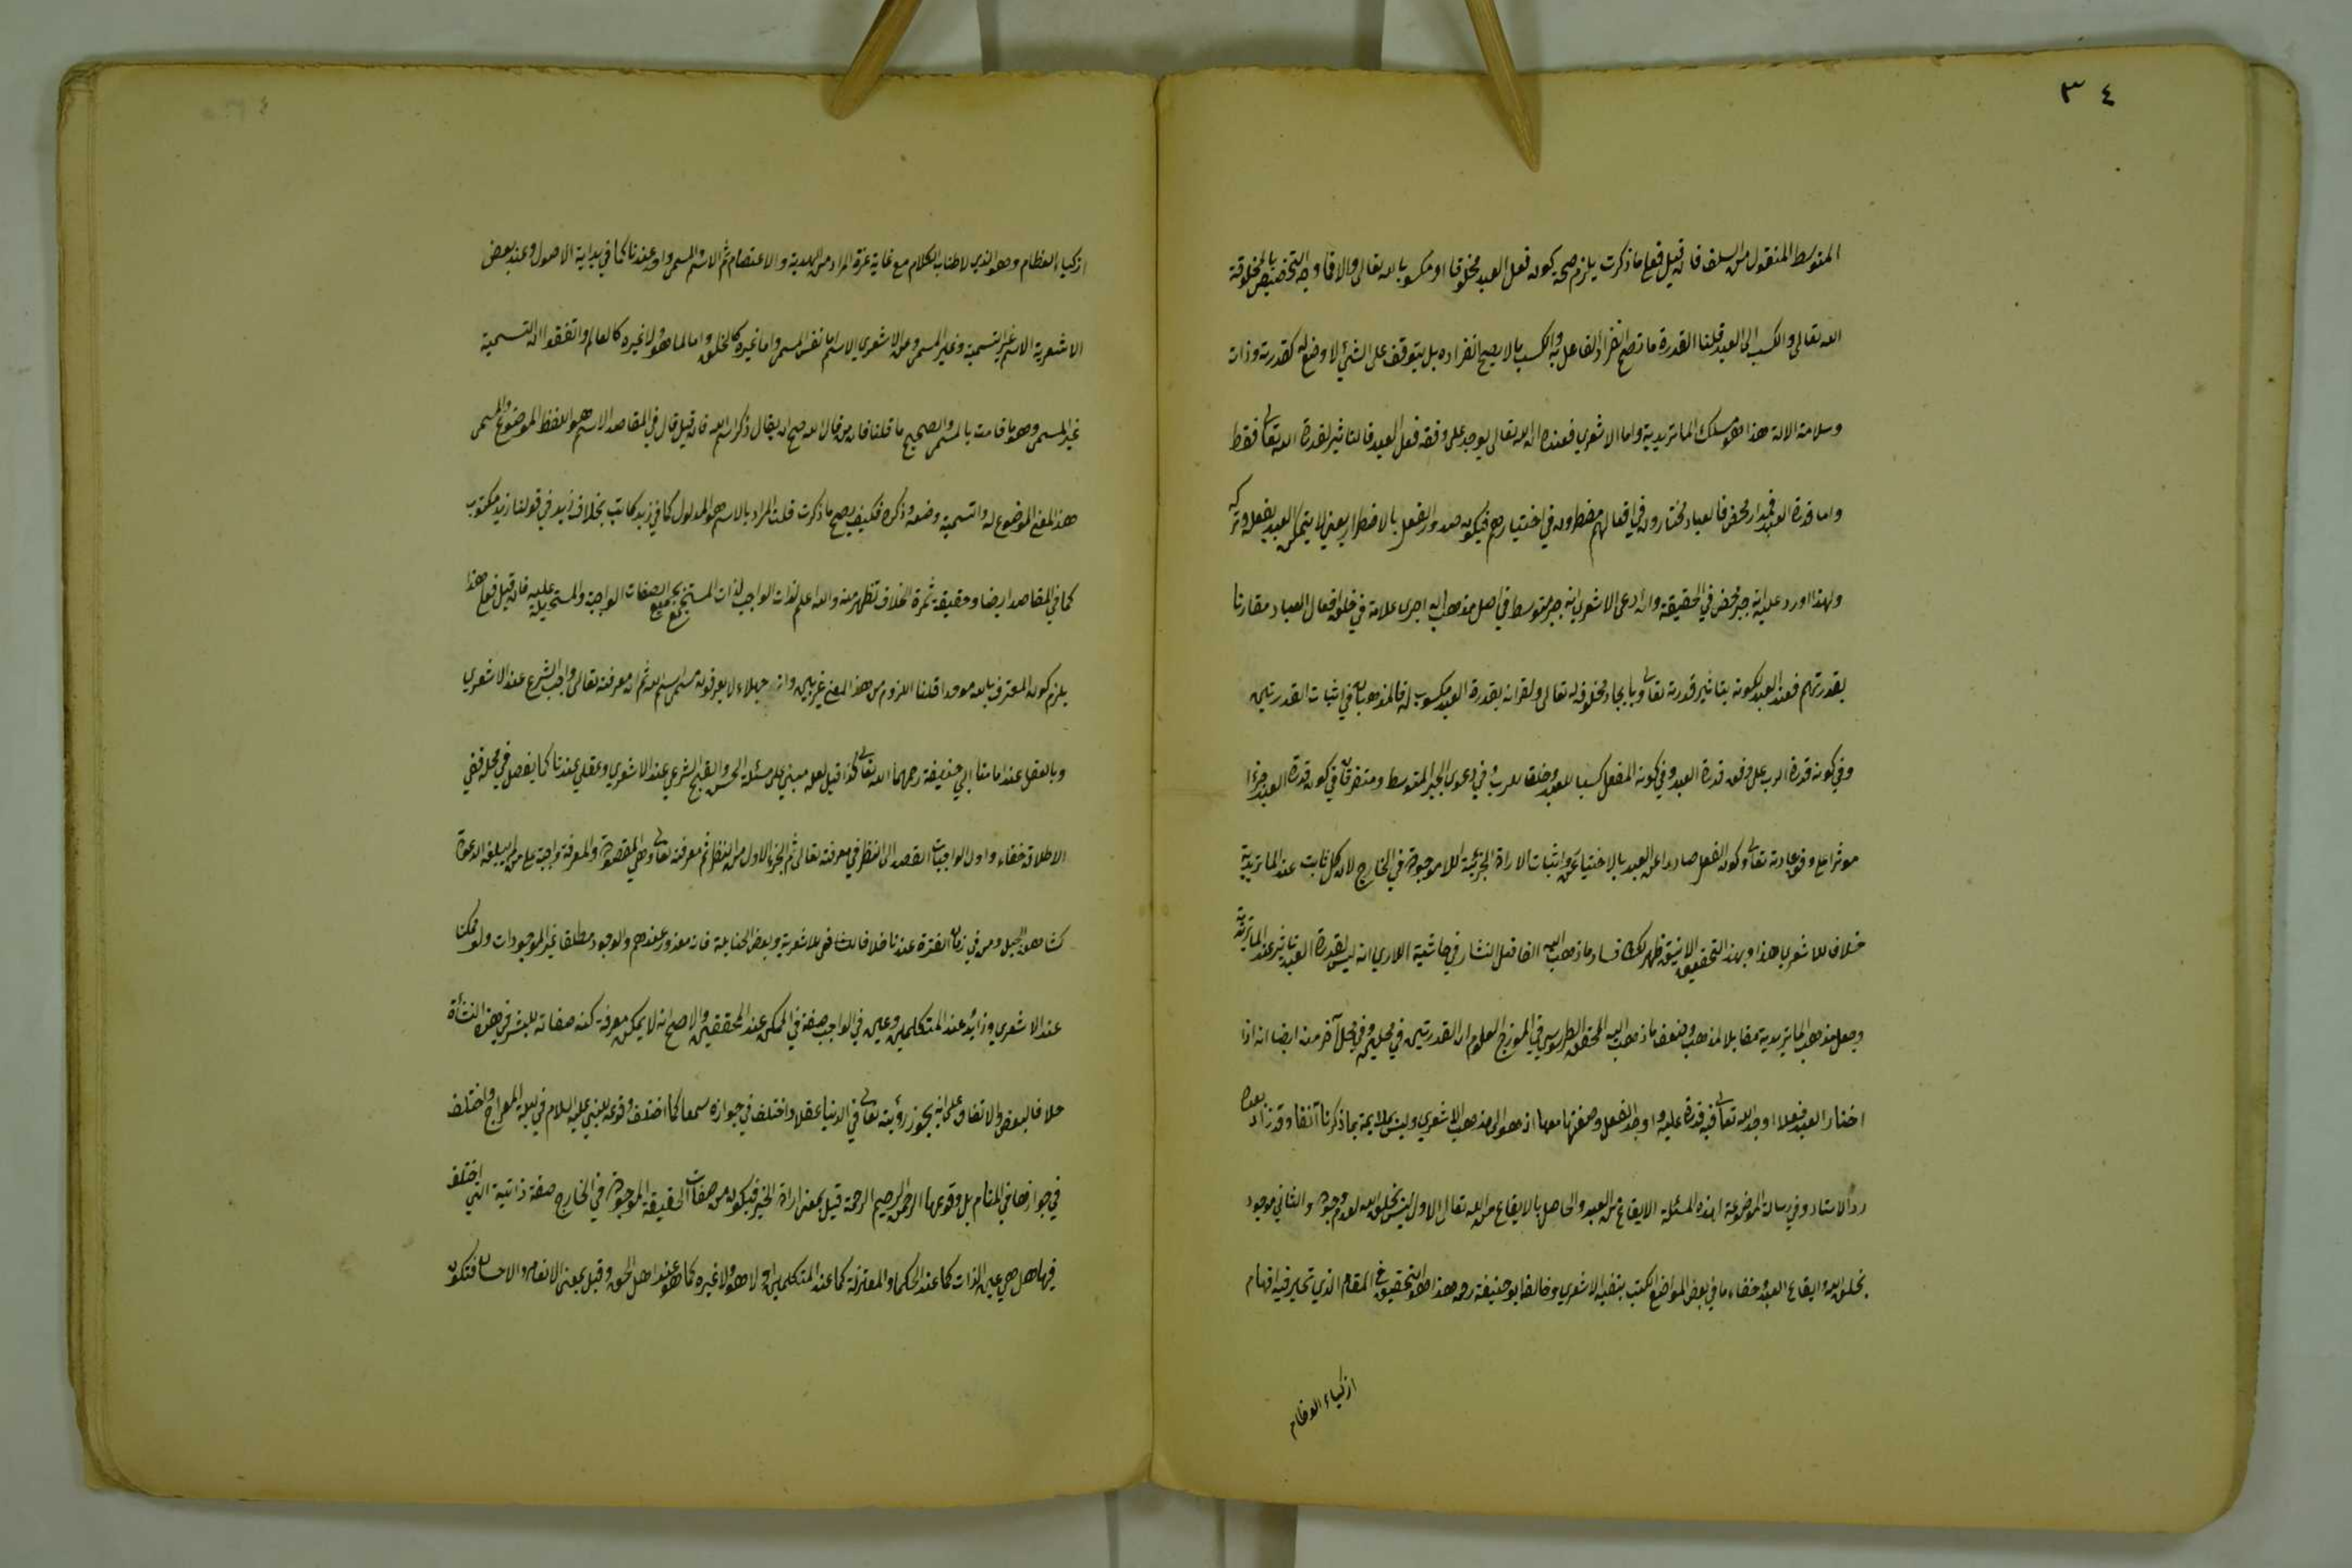 ٣٤
المتوسط المنقول من السلف فان قيل فعلى ما ذكرت يلزم صحة كون فعل العبد مخلوقا او مكسوبا لله تعالى والا فما وجه التخصيص بالمخلوقية
الله تعالى والكسب الى العبد قلنا القدرة ما تصح انفراد الفاعل به والكسب ما لا يصح انفراده بل يتوقف على الشئ لا وضع له كقدرته وذات
وسلامة الالة هذا هو مسلك الماتريدية واما الاشعري فعنده ان الله تعالى يوجد على وفقه فعل العبد فالتاثير لقدرة الله تعالى فقط
واما قدرة العبد فمدار محض فالعباد مختارون في افعالهم مضطرون في اختيارهم فيكون صدور الفعل بالاضطرار يعني لا يتمكن العبد بفعله وتركه
ولهذا اورد عليه انه جبر محض في الحقيقة وان ادعى الاشعري انه جبر متوسط في اصل مذهبه انه اجرى علامة في خلق افعال العباد مقارنا
بقدرتهم فعند العبد لكونه بتاثير قدرته تعالى وبايجاد مخلوق له تعالى ولقرانه بقدرة العبد مكسوب له فالمذهبان في اثبات القدرتين
وفي كون قدرة الرب على وفق قدرة العبد وفي كون الفعل كسبا للعبد وخلقا للرب وفي دعوى الجبر المتوسط ومتفرقان في كون قدرة العبد جزءا
موثرا على وفق عادته تعالى وكون الفعل صادرا عن العبد بالاختيار عن اثبات الارادة الجزئية اللاموجودة في الخارج لان كل ثابت عند الماتريدية
خلافا للاشعري هذا وبهذا التحقيق الانيق ظهر لك فساد ما ذهب اليه الفاضل النشار في حاشية اللاري انه ليس لقدرة العبد تاثير عند الماتريدية
وجعل مذهب الماتريدية مقابلا لمذهب وضعف ما ذهب اليه المحقق الطرسوسي في انموزج العلوم ان القدرتين في محلين وفي محل آخر منه ايضا انه اذا
اختار العبد فعلا اوجد الله تعالى فيه قدرة عليه واوجد الفعل وصفتها معها اذ هو المذهب للاشعري وليس بملايمة بما ذكرنا آنفا وقد زاد بعده
رد الاستاد وفي رسالة الموضوعة لهذه المسئلة الايقاع من العبد والحاصل بالايقاع من الله تعالى الاول ليس بخلق الله لعدم وجوده والثاني موجود
بخلق الله وايقاع العبد وخفاء ما في بعض المواضع الكتب بنفيه الاشعري وخالفه ابو حنيفة رحمه هذا هو التحقيق في المقام الذي تحير فيه افهام
ازكياء العظام
ازكياء العظام وهو الذي لاطناب الكلام مع غاية عزة المراد من الهدية والاعتصام ثم الاسم والمسمى واحد عندنا كما في بداية الاصول وعند بعض
الاشعرية الاسم غير التسمية وغير المسمى وعن الاشعري الاسم اما نفس المسمى واما غيره كالخلق واما لا هو ولا غيره كالعالم واتفقوا ان التسمية
غير المسمى وهو ما قامت بالمسمى والصحيح ما قلنا فان من قال الله صح ان يقال ذكر اسم الله فان قيل قال في المقاصد الاسم هو اللفظ الموضوع والمسمى
هذ المعنى الموضوع له والتسمية وضعه وذكره فكيف يصح ما ذكرت قلت المراد بالاسم هو المدلول كما في زيد كاتب بخلاف زيد في قولنا زيد مكتوب
كما في المقاصد ايضا وحقيقة ثمرة الخلاف تظهر منه والله علم لذات الواجب لذات المستجمع بجميع الصفات الواجبة والمستحيلة عليه فان قيل فعلى هذا
يلزم كون المعترف بالله موحدا قلنا اللزوم من هذ المعنى غير بين وانه جهلاء لا يعرفون مسمى اسم الله ثم ان معرفته تعالى واجب الشرع عند الاشعري
وبالعقل عند امامنا ابي حنيفة رحمهما الله تعالى كذا قيل لعله مبني على مسئلة الحسن والقبح الشرعي عند الاشعري وعقلي عندنا كما يفصل في محله ففي
الاطلاق خفاء واول الواجبات القصد الى النظر في معرفته تعالى ثم الجزء الاول من النظر ثم معرفته تعالى وهي المقصودة والمعرفة واجبة على من لم يبلغه الدعوة
كشاهق الجبل ومن في زمان الفترة عندنا خلافا للشافعي للاشعرية وبعض الحنابلة فانه معذور عندهم والوجود مطلقا غير الموجودات ولو ممكنا
عند الاشعري وزائد عند المتكلمين وعين في الواجب صفة في الممكن عند المحققين والاصح انه لا يمكن معرفة كنه صفاته للبشر في هذه النشأة
خلافا لبعض والاتفاق على انه يجوز رؤيته تعالى في الدنيا عقلا واختلف في جوازه سمعا كما اختلف وقوعه للنبي عليه السلام في ليلة المعراج واختلف
في جوازها في المنام بل وقوعها الرحمن الرحيم الرحمة قيل بمعنى ارادة الخير فيكون من صفات الحقيقة الموجودة في الخارج صفة ذاتية التي اختلف
فيها هل هي عين الذات كما عند الحكماء والمعتزلة كما عند المتكلمين او لا هو ولا غيره كما هو عند اهل الحق وقيل بمعنى الانعام والاحسان فتكون